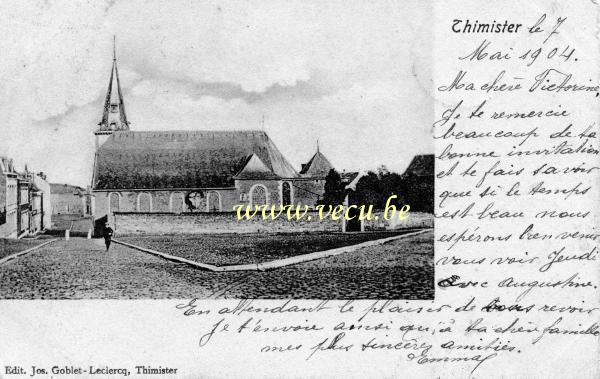 Thimister le 7
Mai 1904.
Ma chère Victorine,
Je te remercie
beaucoup de ta
bonne invitation
et te fais savoir
que si le temps
est beau nous
espérons bien venir
vous voir Jeudi
avec Augustine.
En attendant le plaisir de vous revoir
Je t'envoie ainsi qu'à ta chère famille
mes plus sincères amitiés.
Emma
www.vecu.be
Edit. Jos. Goblet-Leclercq, Thimister